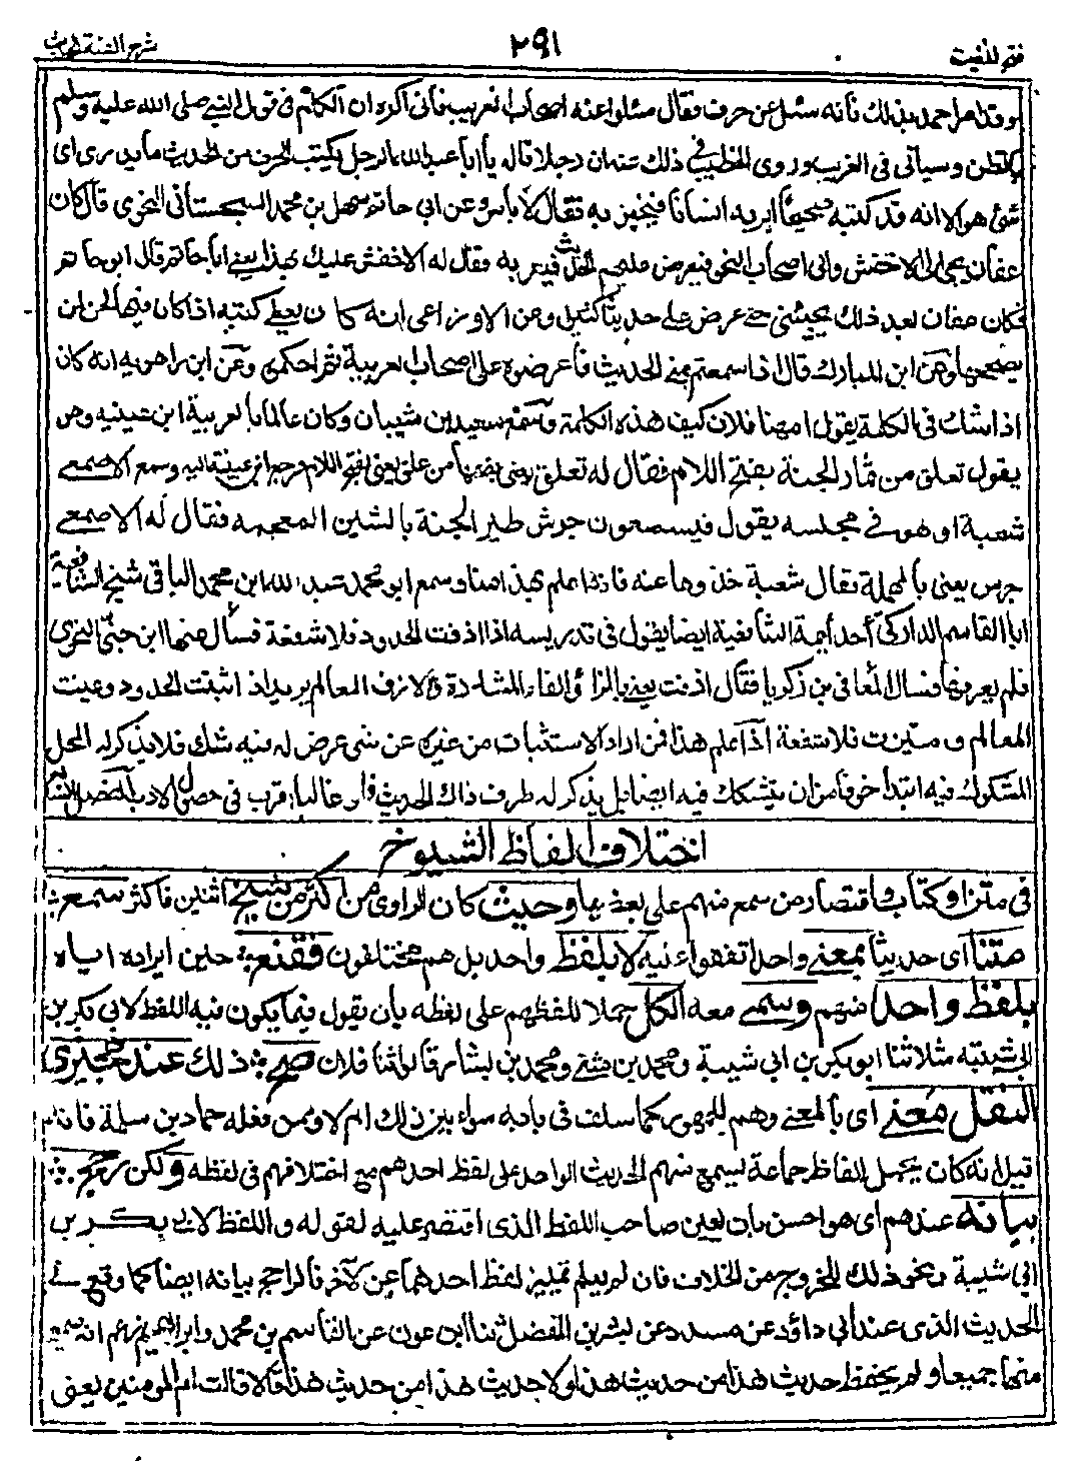 فتح المغيث ٢٩١ شرح الفية الحديث
وقد امر احمد بذلك فانه سئل عن حرف فقال سلوا عنه اصحاب الغريب فاني اكره ان اتكلم في قول النبي صلى الله عليه وسلم
بالظن وسياتي في الغريب وروى الخطيب في ذلك عنه ان رجلا قال له يا ابا عبد الله الرجل يكتب الحرف من الحديث ما يدري اي
شئ هو الا انه قد كتبه صحيحا ايريه انسانا فيخبر به فقال لا باس وعن ابي حاتم سهل بن محمد السجستاني النحوي قال كان
عفان يجئ الى الاخفش والى اصحاب النحو فيعرض عليهم الحديث فيعربه فقال له الاخفش عليك بهذا يعني ابا حاتم قال ابو حاتم
فكان عفان بعد ذلك يجيئني حتى عرض على حديثا كثيرا وعن الاوزاعي انه كان يعطي كتبه اذا كان فيها لحن لمن
يصلحها وعن ابن المبارك قال اذا سمعتم مني الحديث فاعرضوه على اصحاب العربية ثم احكموه وعن ابن راهويه انه كان
اذا شك في الكلمة يقول اههنا فلان كيف هذه الكلمة وسمع سعيد بن شيبان وكان عالما بالعربية ابن عيينة وهو
يقول تعلق من ثمار الجنة بفتح اللام فقال له تعلق يعني بضمها من علق يعني بفتح اللام فرجع ابن عيينة اليه وسمع الاصمعي
شعبة وهو في مجلسه يقول فيسمعون جرش طير الجنة بالشين المعجمة فقال له الاصمعي
جرس يعني بالمهملة فقال شعبة خذوها عنه فانه اعلم بهذا منا وسمع ابو محمد عبد الله ابن محمد الباقي شيخ الشافعية
ابا القاسم الداركي احد ايمة الشافعية ايضا يقول في تدريسه اذا ازفت الحدود فلا شفعة فسأل عنها ابن جني النحوي
فلم يعرفها فسال المعافى بن زكريا فقال ازفت يعني بالزاي والفاء المشددة والازف المعالم يريد اذا اثبتت الحدود وعينت
المعالم وميزت فلا شفعة اذا علم هذا فمن اراد الاستثبات من غيره عن شئ عرض له فيه شك فلا يذكر له المحل
المشكوك فيه ابتدأ خوفا من ان يتشكك فيه ايضا بل يذكر له طرف ذاك الحديث غالبا اقرب في حصول الادب
اختلاف الفاظ الشيوخ
في متن او كتاب واقتصار من سمع منهم على بعضها وحيث كان الراوي من اكثر من شيخ اثنين فاكثر سمع
متنا اي حديثا بمعنى واحد اتفقوا فيه لا بلفظ واحد بل هم مختلفون فقنع حين ايراده اياه
بلفظ واحد منهم وسمى معه الكل حملا للفظهم على لفظه بأن يقول فيما يكون فيه اللفظ لابي بكر بن
ابي شيبة مثلا ثنا ابو بكر بن ابي شيبة ومحمد بن مثنى ومحمد بن بشار قالوا ثنا فلان صح ذلك عند مجيزي
النقل معنى اي بالمعنى وهم الجمهور كما سلف في بابه سواء بين ذلك ام لا وممن فعله حماد بن سلمة فانه
قيل انه كان يحمل الفاظ جماعة يسمع منهم الحديث الواحد على لفظ احدهم مع اختلافهم في لفظه ولكن رجح
بيانه عندهم اي هو احسن بان يعين صاحب اللفظ الذي اقتصر عليه لقوله واللفظ لابي بكر بن
ابي شيبة ونحو ذلك للخروج من الخلاف فان لم يعلم تمييز لفظ احدهما عن الآخر فالراجح بيانه ايضا كما وقع في
الحديث الذي عند ابي داؤد عن مسدد عن بشر بن المفضل ثنا ابن عون عن القاسم بن محمد وابراهيم زعم انه سمع
منهما جميعا ولم يحفظ حديث هذا من حديث هذا ولا حديث هذا من حديث هذا قالا قالت ام المومنين يعني